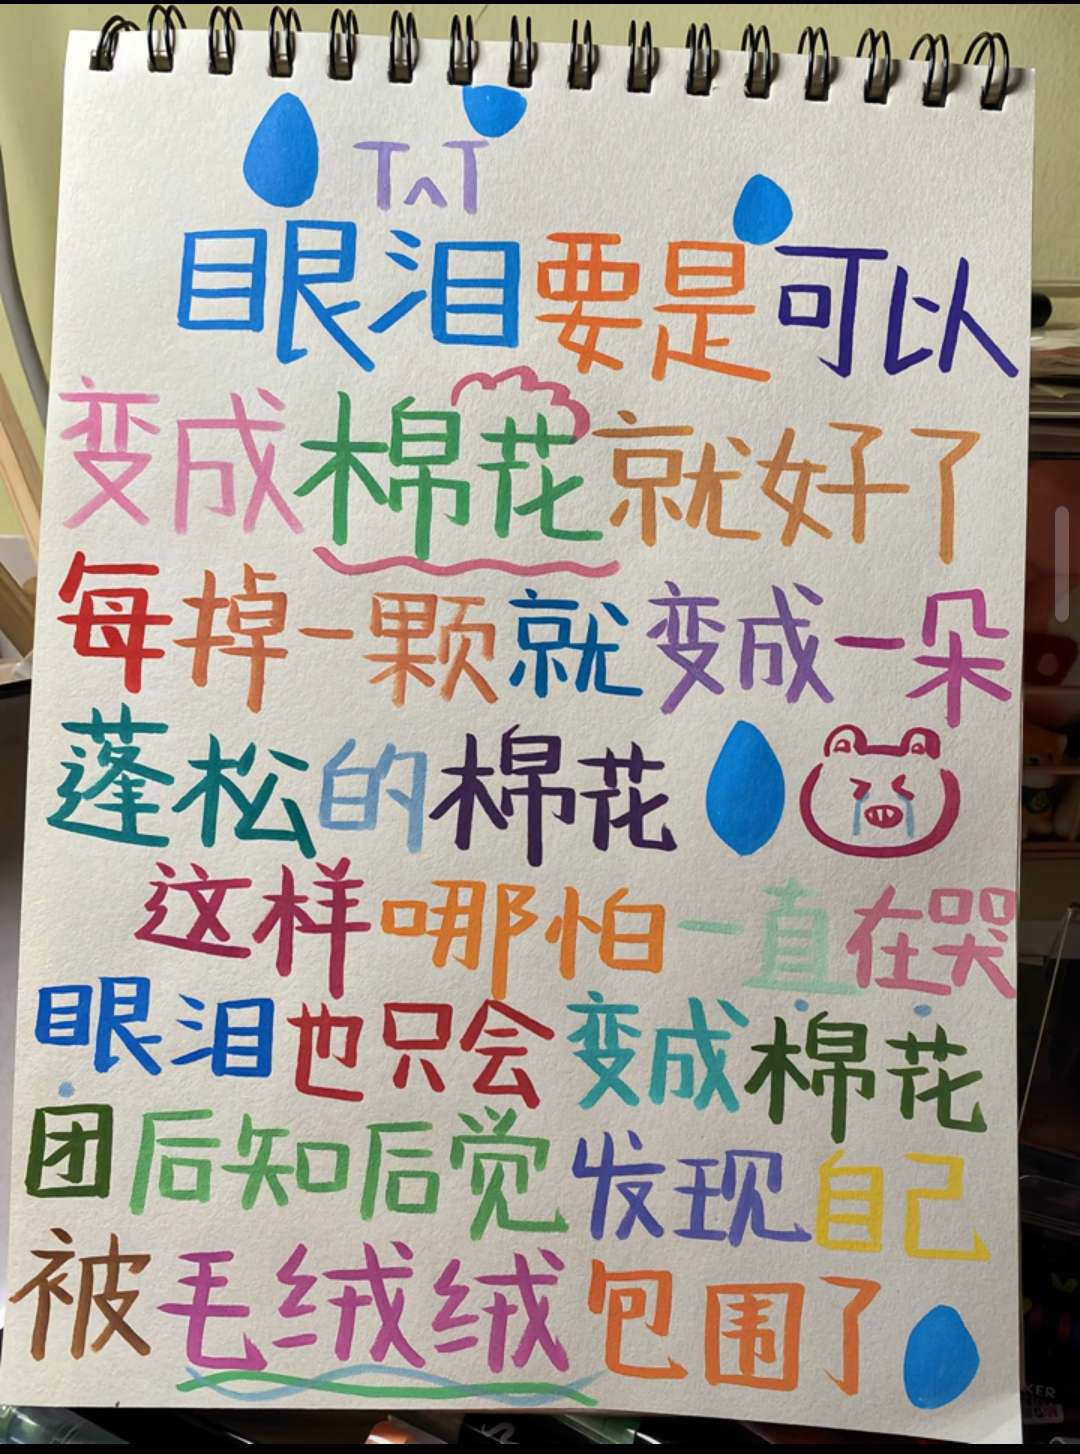 TAT
眼泪要是可以
变成棉花就好了
每掉一颗就变成一朵
蓬松的棉花
这样哪怕一直在哭
眼泪也只会变成棉花
团后知后觉发现自己
被毛绒绒包围了